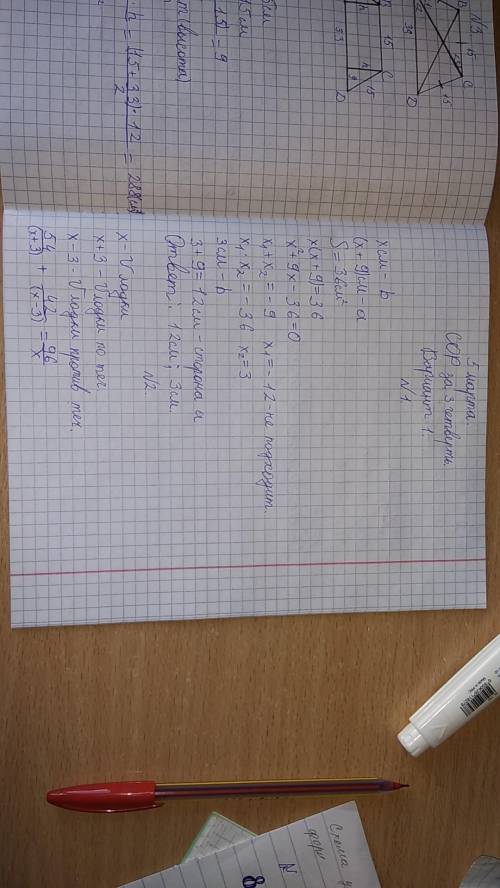 5 марта.
СОР за 3 четверть.
Вариант 1.
N1
x см - b
(x+9)см - a
S = 36см²
x(x+9)=36
x²+9x-36=0
x₁+x₂=-9 x₁=-12-не подходит.
x₁·x₂=-36 x₂=3
3см - b
3+9=12см - сторона a
Ответ: 12см; 3см.
N2
x - V лодки
x+3 - V лодки по теч
x-3 - V лодки против теч.
54/(x+3) + 42/(x-3) = 96/x
N3.
15
C
15
D
15
C
33
h
9
15
D
= 9
(высота)
· h = (15+33)·12/2 = 288см²
Схема
N
8